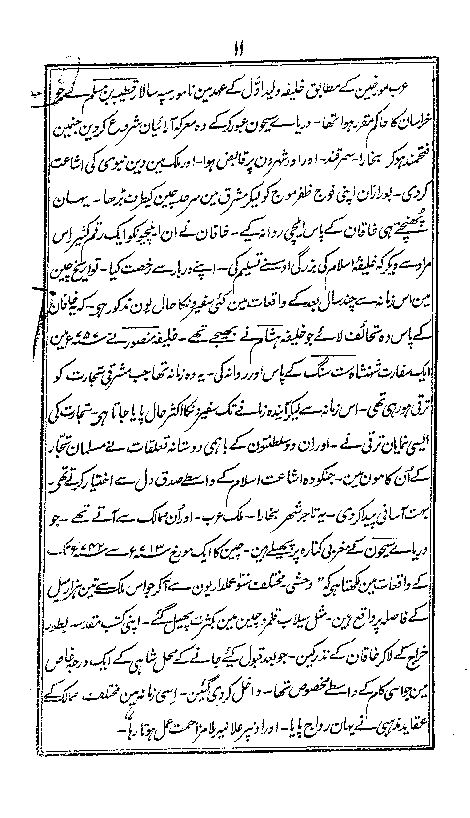 ۱۱
عرب مورخین کے مطابق خلیفہ ولید اوّل کے عہد مین نامور سپہ سالار قطیبہ بن مسلم نے جو
خراسان کا حاکم مقرر ہوا تھا۔ دریاے سیحون عبور کر کے وہ معرکہ آرائیان شروع کر دین جنمین
فتحمند ہو کر بخارا۔ سمرقند۔ اور اور شہرون پر قابض ہوا۔ اور ملک مین دین نبوی کی اشاعت
کر دی۔ بعد ازان اپنی فوج ظفر موج کو لیکر مشرق مین سرحد چین کیطرف بڑھا۔ یہان
پہنچتے ہی خاقان کے پاس ایلچی روانہ کیے۔ خاقان نے ان ایلچیونکو ایک رقم کثیر اس
مراد سے دیکر کہ خلیفۂ اسلام کی بزرگی اوسنے تسلیم کی۔ اپنے دربار سے رخصت کیا۔ تواریخ چین
مین اس زمانہ سے چند سال بعد کے واقعات مین کئی سفیرونکا حال یون مذکور ہی۔ کہ خاقان
کے پاس وہ تحائف لائے جو خلیفہ ہشام نے بھیجے تھے۔ خلیفہ منصور نے ۷۵۶ء مین
ایک سفارت شہنشاہ ست سنگ کے پاس اور روانہ کی۔ یہ وہ زمانہ تھا جب مشرقی تجارت کو
ترقی ہو رہی تھی۔ اس زمانہ سے لیکر آیندہ زمانے تک سفیرونکا اکثر حال پایا جاتا ہی۔ تجارت کی
ایسی نمایان ترقی نے۔ اور ان دو سلطنتون کے باہمی دوستانہ تعلقات نے مسلمان تجار
کے اُن کامون مین۔ جنکو وہ اشاعت اسلام کے واسطے صدق دل سے اختیار کرتے تھے۔
بہت آسانی پیدا کر دی۔ یہ تاجر شہر بخارا۔ ملک عرب۔ اور اُن ممالک سے آتے تھے۔ جو
دریاے سیحون کے مغربی کنارہ پر پھیلے ہین۔ چین کا ایک مورخ ۷۱۳ء سے ۷۴۲ء تک
کے واقعات مین لکھتا ہی کہ "وحشی مختلف سَو عملداریون سے آ کر جو اس ملک سے تین ہزار میل
کے فاصلہ پر واقع ہین۔ مثل سیلاب قلمرو چین مین بکثرت پھیل گئے۔ اپنی کتب مقدسہ بطور
خراج کے لا کر خاقان کے نذر کین۔ جو بعد قبول کیئے جانے کے محل شاہی کے ایک درجہ خاص
مین جو اسی کام کے واسطے مخصوص تھا۔ داخل کر دی گئین۔ اسی زمانہ مین مختلف ممالک کے
عقاید مذہبی نے یہان رواج پایا۔ اور اونپر علانیہ بلا مزاحمت عمل ہوتا رہا"۔